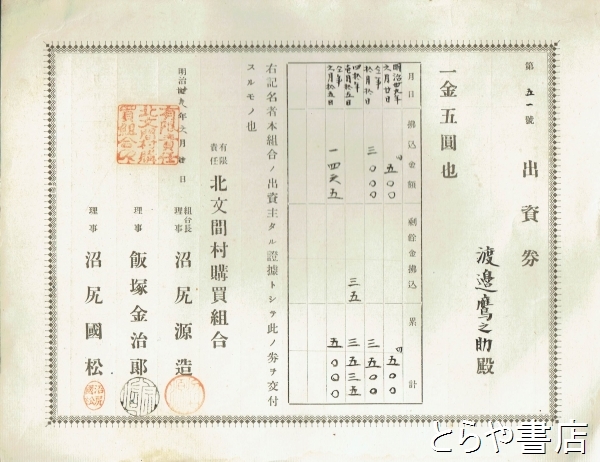 第五一號
出資券
渡邉鷹之助殿
一金五圓也
月日 拂込金額 剰餘金拂込 累計
明治卅九年 六月廿日 円 五〇〇 円 五〇〇
仝年 拾月拾日 三〇〇〇 三五〇〇
四拾年 壱月拾五日 三五 三五三五
仝年 六月拾五日 一四六五 五〇〇〇
右記名者本組合ノ出資主タル證據トシテ此ノ券ヲ交付
スルモノ也
明治卅九年六月廿日
有限責任 北文間村購買組合
組合長理事 沼尻源造
理事 飯塚金治郎
理事 沼尻國松
有限責任
北文間村購
買組合之印
とらや書店